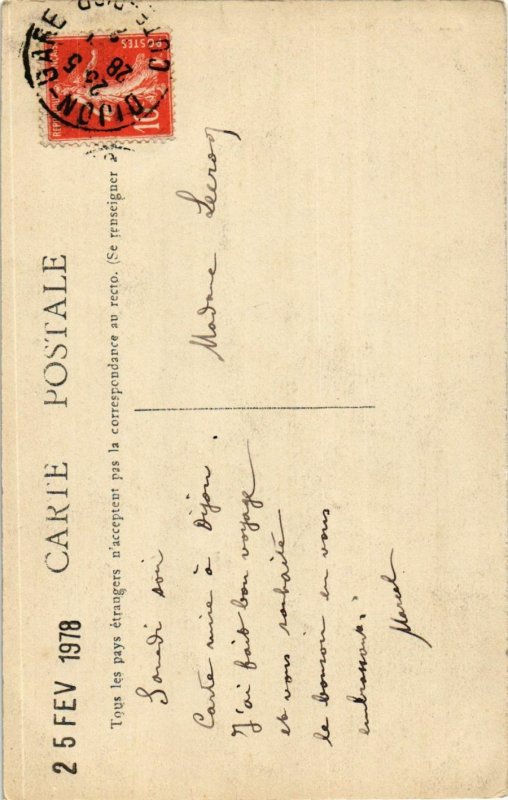 25 FEV 1978
CARTE POSTALE
Tous les pays étrangers n'acceptent pas la correspondance au recto. (Se renseigner
Samedi soir
Carte mise à Dijon.
J'ai fait bon voyage
et vous souhaite
le bonsoir en vous
embrassant.
Marcel
Madame Leeroy
DIJON-GARE
COTE
23 5
28
POSTES
10